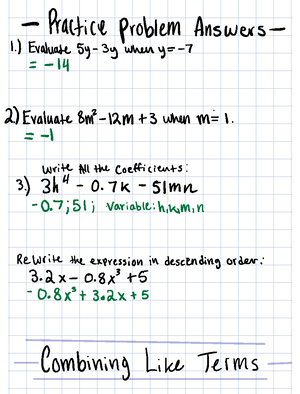 - Practice Problem Answers -
1.) Evaluate 5y - 3y when y = -7
= -14
2) Evaluate 8m² - 12m + 3 when m = 1.
= -1
Write All the Coefficients:
3.) 3h⁴ - 0.7k - 51mn
-0.7; 51; Variable: h,k,m,n
ReWrite the expression in descending order:
3.2x - 0.8x³ + 5
- 0.8x³ + 3.2x + 5
Combining Like Terms